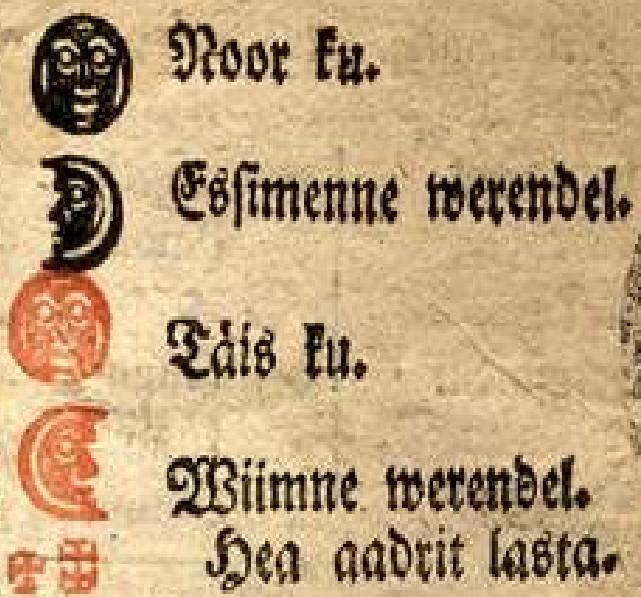 Noor ku.
Esſimenne werendel.
Täis ku.
Wiimne werendel.
Hea aadrit lasta.